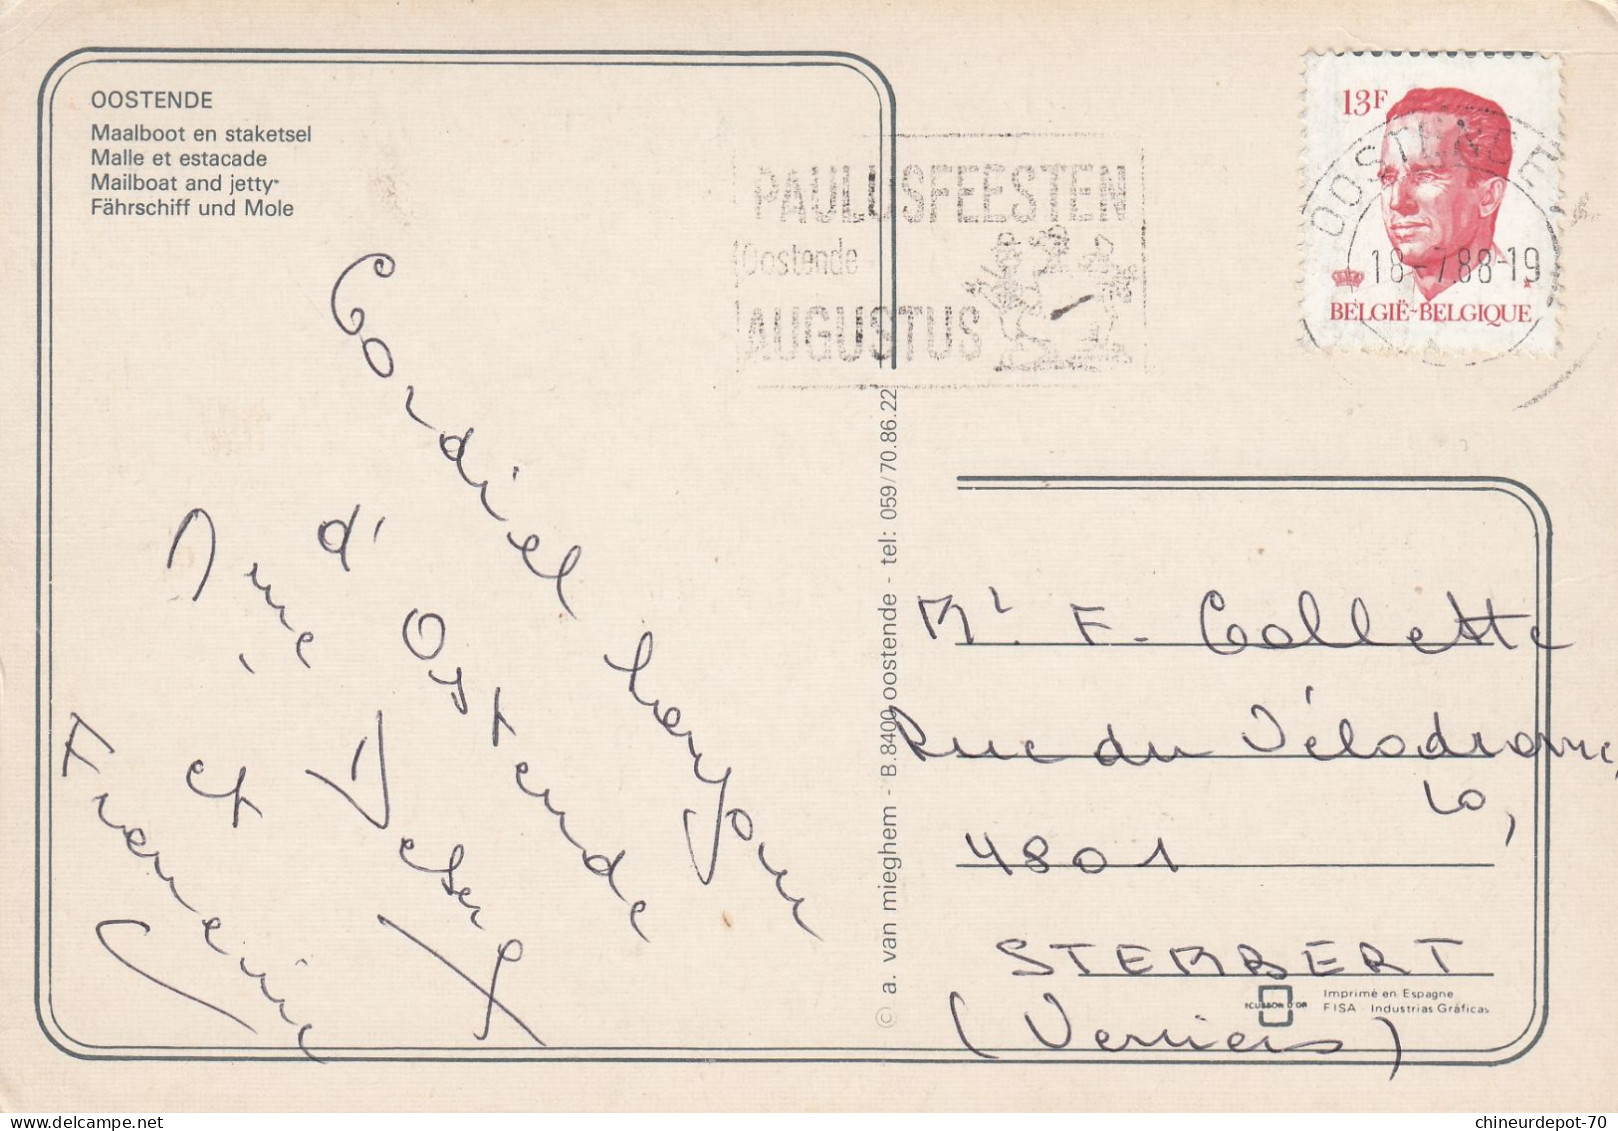 OOSTENDE
Maalboot en staketsel
Malle et estacade
Mailboat and jetty
Fährschiff und Mole
PAULUSFEESTEN
Oostende
AUGUSTUS
13F
OOSTENDE
18-7.88-19
BELGIË-BELGIQUE
Cordiel bonjour
d'Ostende
et
Francine
© a. van mieghem - B.8400 oostende - tel: 059/70.86.22
Mr. F. Collette
Rue du Vélodrome,
10,
4801
STEMBERT
(Verviers)
ECUSSON D'OR
Imprimé en Espagne
FISA - Industrias Gráficas
chineurdepot-70